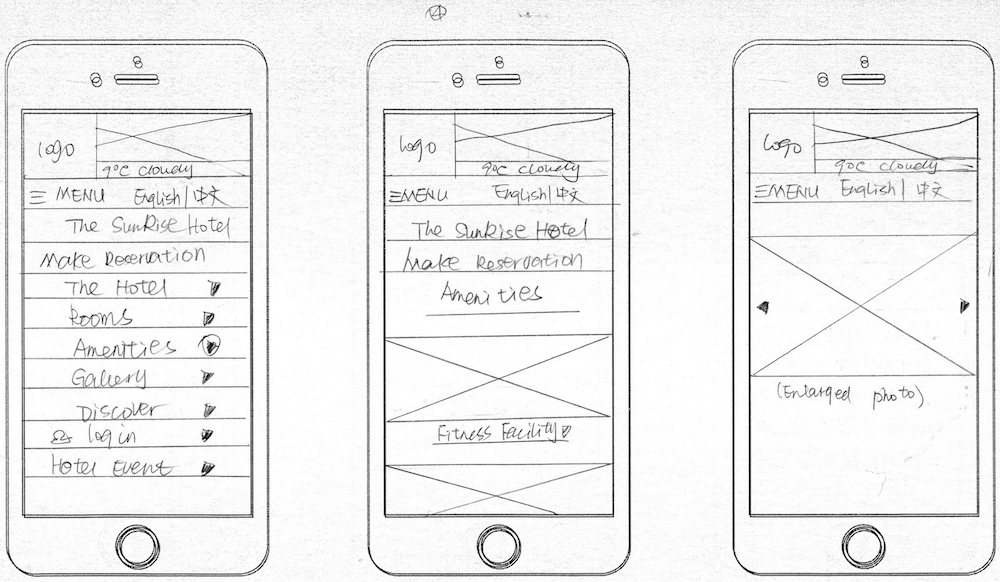 4
Logo
9°C Cloudy
≡ MENU English/中文
The SunRise Hotel
Make Reservation
The Hotel
Rooms
Amenities
Gallery
Discover
log in
Hotel Event
Logo
9°C Cloudy
≡MENU English/中文
The SunRise Hotel
Make Reservation
Amenities
Fitness Facility
Logo
9°C Cloudy
≡MENU English/中文
(Enlarged photo)